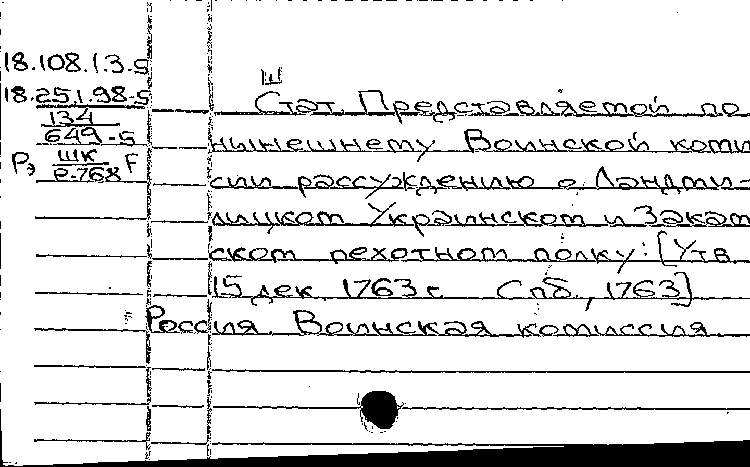 18.108.1.3.5
18.251.98.5
134
649-5
Рэ ШК F
Р-768
Ш
Стат. Представляемой по
нынешнему Воинской коми
сии рассуждению о Ландми-
лицком Украинском и Закам
ском пехотном полку: [Утв.
15 дек. 1763 г. Спб., 1763]
Россия. Воинская комиссия.